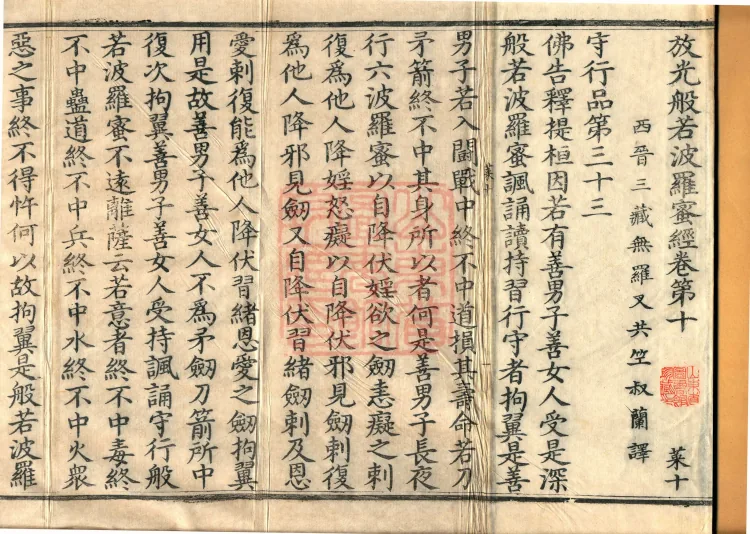 放光般若波羅蜜經卷第十　菜十
西晉三藏無羅叉共竺叔蘭譯
守行品第三十三
佛告釋提桓因若有善男子善女人受是深
般若波羅蜜諷誦讀持習行守者拘翼是善
男子若入鬪戰中終不中道損其壽命若刀
矛箭終不中其身所以者何是善男子長夜
行六波羅蜜以自降伏婬欲之劒恚癡之刺
復爲他人降婬怒癡以自降伏邪見劒刺復
爲他人降邪見劒又自降伏習緒劒刺及恩
愛刺復能爲他人降伏習緒恩愛之劒拘翼
用是故善男子善女人不爲矛劒刀箭所中
復次拘翼善男子善女人受持諷誦守行般
若波羅蜜不遠離薩云若意者終不中毒終
不中蠱道終不中兵終不中水終不中火衆
惡之事終不得忤何以故拘翼是般若波羅